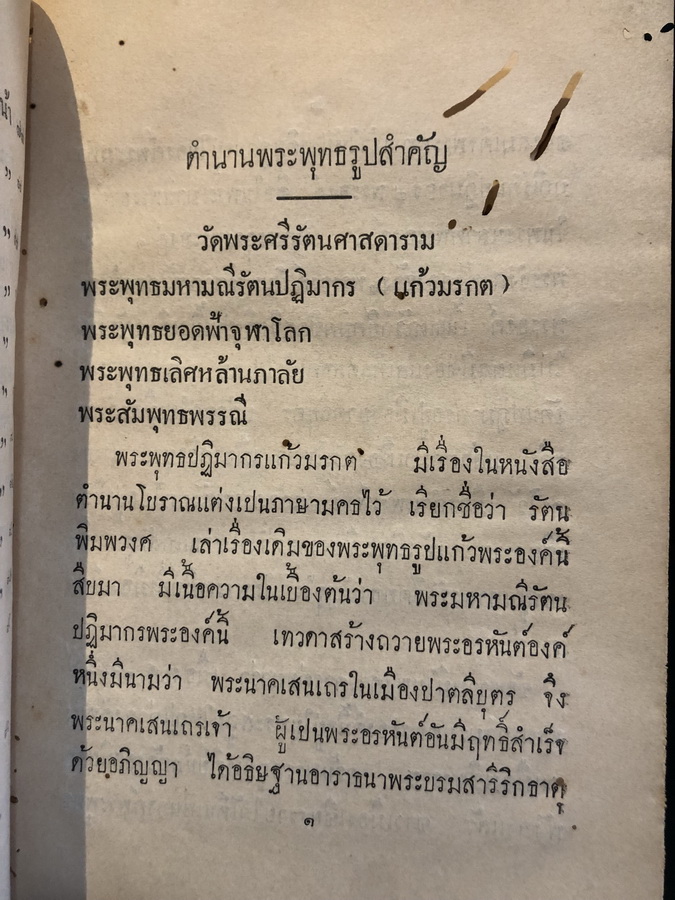 ตำนานพระพุทธรูปสำคัญ
วัดพระศรีรัตนศาสดาราม
พระพุทธมหามณีรัตนปฏิมากร ( แก้วมรกต )
พระพุทธยอดฟ้าจุฬาโลก
พระพุทธเลิศหล้านภาลัย
พระสัมพุทธพรรณี
พระพุทธปฏิมากรแก้วมรกต มีเรื่องในหนังสือ
ตำนานโบราณแต่งเปนภาษามคธไว้ เรียกชื่อว่า รัตน
พิมพวงศ เล่าเรื่องเดิมของพระพุทธรูปแก้วพระองค์นี้
สืบมา มีเนื้อความในเบื้องต้นว่า พระมหามณีรัตน
ปฏิมากรพระองค์นี้ เทวดาสร้างถวายพระอรหันต์องค์
หนึ่งมีนามว่า พระนาคเสนเถรในเมืองปาตลีบุตร จึง
พระนาคเสนเถรเจ้า ผู้เปนพระอรหันต์อันมีฤทธิ์สำเร็จ
ด้วยอภิญญา ได้อธิษฐานอาราธนาพระบรมสารีริกธาตุ
๑